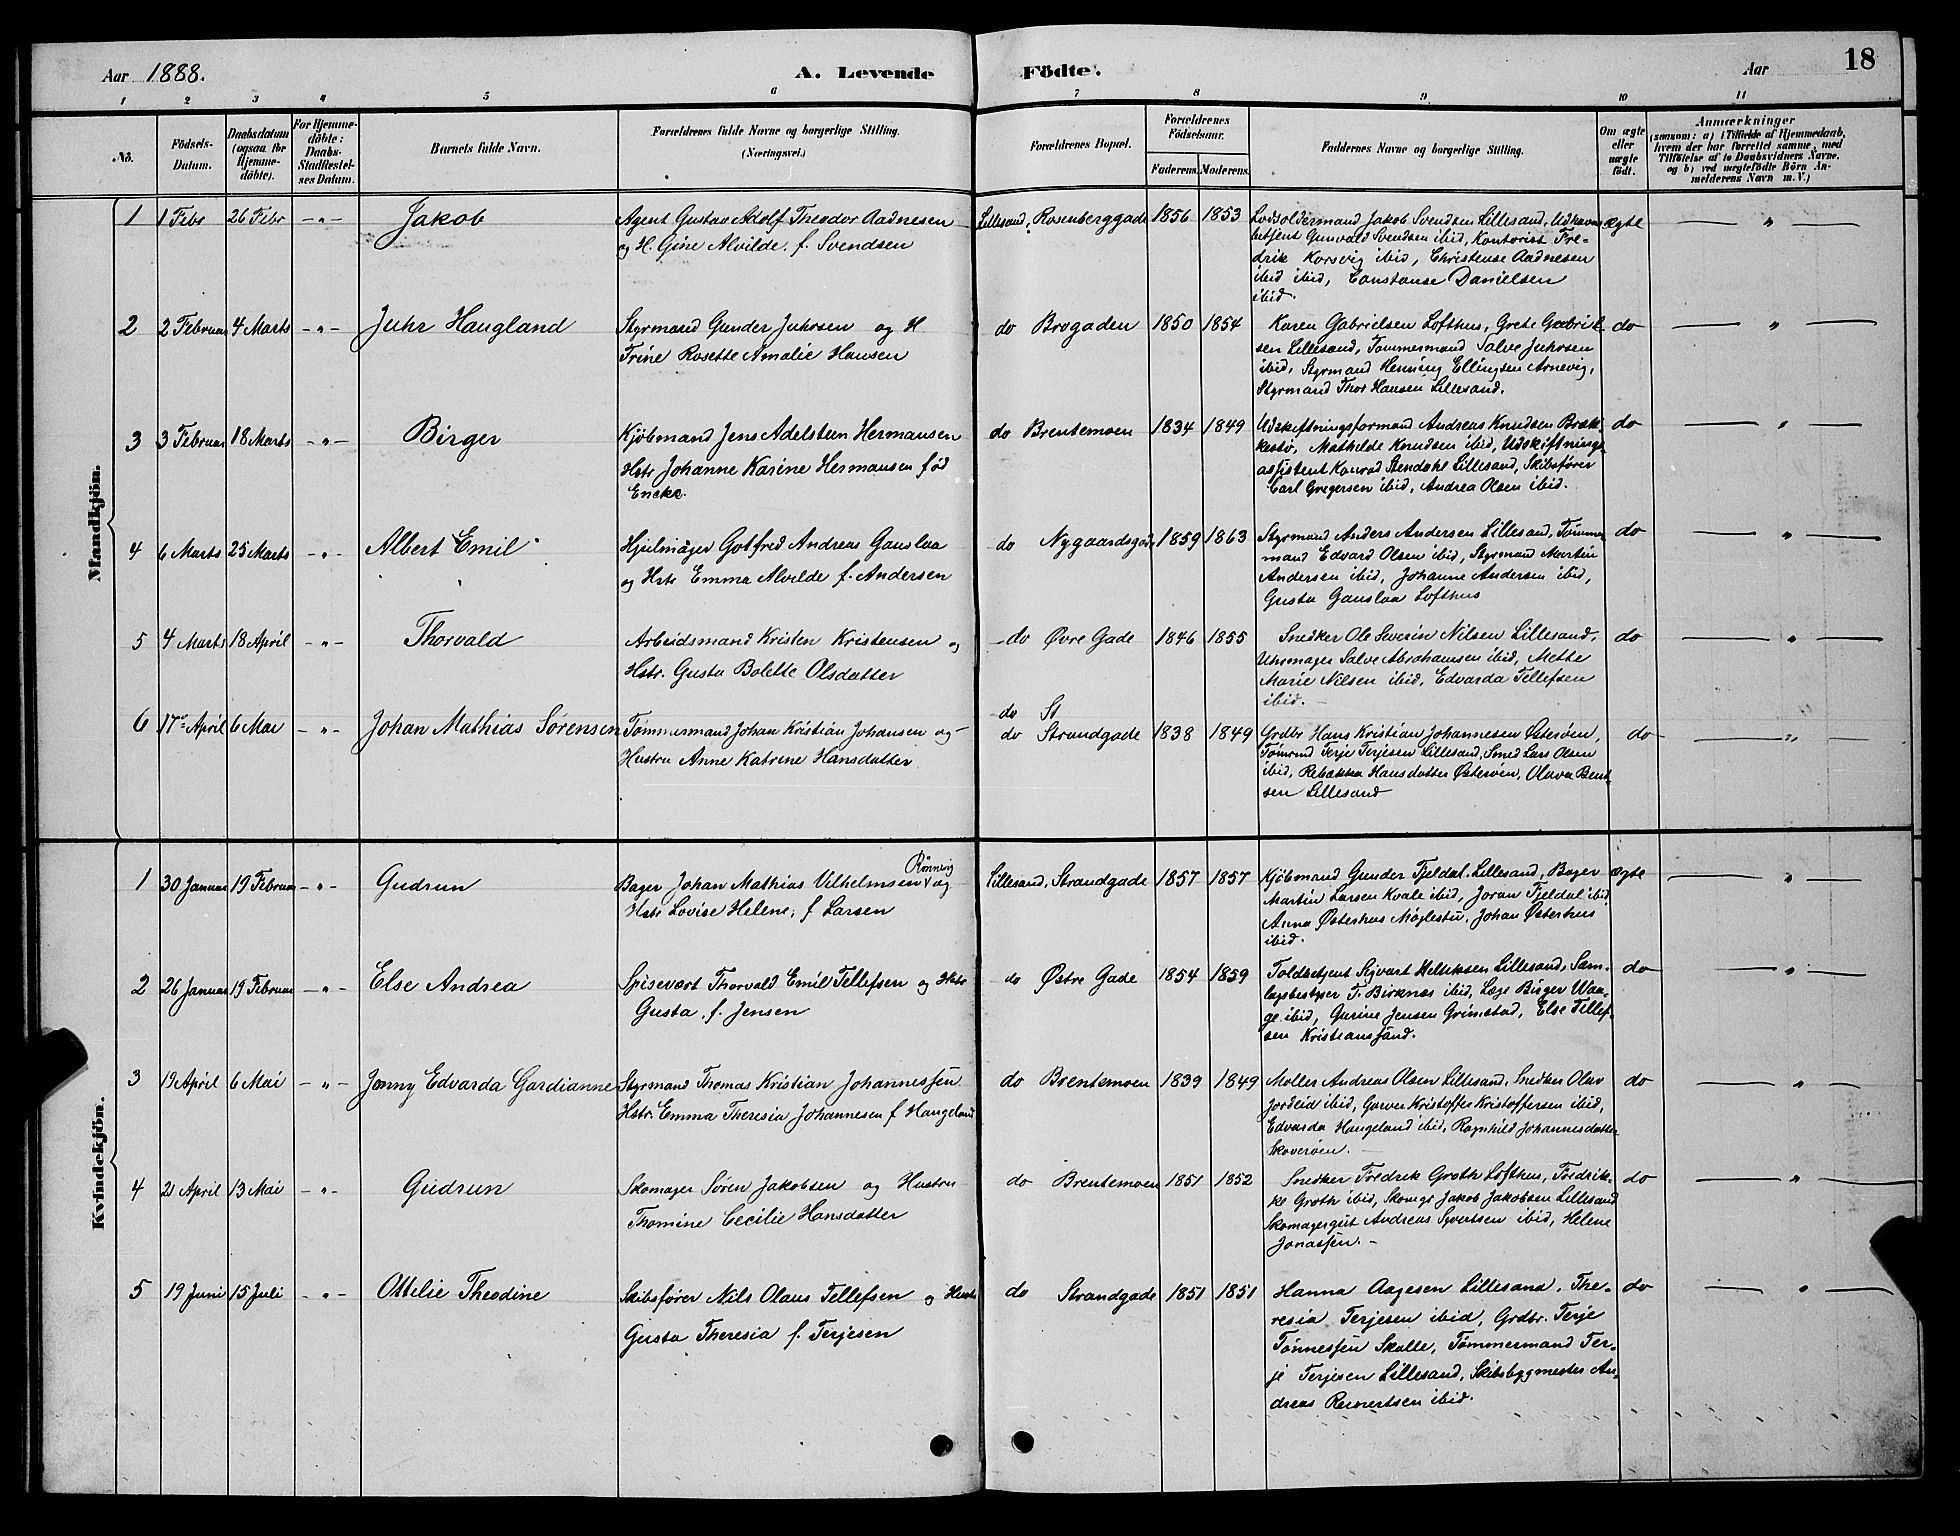 Aar 1888.
A. Levende
Födte.
Aar
18
1 2 3 4 5 6 7 8 9 10 11
No.
Födsels-Datum.
Daabsdatum (ogsaa for Hjemmedöbte).
For Hjemmedöbte: Daabs-Stadfæstelses Datum.
Barnets fulde Navn.
Forældrenes fulde Navne og borgerlige Stilling.
(Næringsvei.)
Forældrenes Bopæl.
Forældrenes Födselsaar.
Faderens. Moderens.
Faddernes Navne og borgerlige Stilling.
Om ægte eller uægte födt.
Anmærkninger
(saasom: a) i Tilfælde af Hjemmedaab, hvem der har forrettet samme, med Tilföielse af to Daabsvidners Navne, og b) ved uægtefödte Börn Anmelderens Navn m. V.)
Mandkjön.
1 1 Febr 26 Febr -"- Jakob
Agent Gustav Adolf Theodor Aadnesen
og H. Gine Alvilde f. Svendsen
Lillesand, Rosenberggade 1856 1853
Lodsoldermand Jakob Svendsen Lillesand, Udhavns
betjent Gunvald Svendsen ibid, Kontorist Fre-
drik Korsvig ibid, Christense Aadnesen
ibid ibid, Constanse Danielsen
ibid.
ægte "
2 2 Februar 4 Marts -"- Juhr Haugland
Styrmand Gunder Juhrsen og H
Trine Rosette Amalie Hansen
do Brogaden 1850 1854
Karen Gabrielsen Lofthus, Grete Gabriel-
sen Lillesand, Tømmermand Salve Juhrsen
ibid, Styrmand Henning Ellingsen Arnevig,
Styrmand Thor Hansen Lillesand.
do "
3 3 Februar 18 Marts -"- Birger
Kjöbmand Jens Adelsteen Hermansen
Hstr Johanne Karine Hermansen fød
Encke.
do Brentemoen 1834 1849
Udskiftningsformand Andreas Knudsen Bræk-
kestø, Mathilde Knudsen ibid, Udskiftnings-
assistent Konrad Stendahl Lillesand, Skibsfører
Carl Gregersen ibid, Andrea Olsen ibid.
do "
4 6 Marts 25 Marts -"- Albert Emil
Hjulmager Gotfred Andreas Gauslaa
og Hstr Emma Alvilde f. Andersen
do Nygaardsgade 1859 1863
Styrmand Anders Andersen Lillesand, Tømmer
mand Edvard Olsen ibid, Styrmand Martin
Andersen ibid, Johanne Andersen ibid,
Gusta Gauslaa Lofthus
do "
5 4 Marts 18 April -"- Thorvald
Arbeidsmand Kristen Kristensen og
Hstr. Gusta Bolette Olsdatter
do Øvre Gade 1846 1855
Snedker Ole Severin Nilsen Lillesand,
Uhrmager Salve Abrahamsen ibid, Mette
Marie Nilsen ibid, Edvarda Tellefsen
ibid.
do "
do St
6 17de April 6 Mai -"- Johan Mathias Sørensen
Tømmermand Johan Kristian Johansen og
Hustru Anne Katrine Hansdatter
do Strandgade 1838 1849
Grdbr Hans Kristian Johannesen Østerøen,
Tømrmd Terje Terjesen Lillesand, Smed Lars Olsen
ibid, Rebækka Hansdatter Østerøen, Olava Bent-
sen Lillesand
do "
Kvindekjön.
1 30 Januar 19 Februar -"- Gudrun
Rønnevig
Bager Johan Mathias Vilhelmsen og
Hstr Lovise Helene, f Larsen
Lillesand, Strandgade 1857 1857
Kjöbmand Gunder Tjeldal Lillesand, Bager
Martin Larsen Kvale ibid, Joran Tjeldal ibid
Anna Østerhus Møglestu, Johan Østerhus
ibid.
ægte "
2 26 Januar 19 Februar -"- Else Andrea
Spisevært Thorvald Emil Tellefsen og Hstr
Gusta, f. Jensen
do Østre Gade 1854 1859
Toldbetjent Sijvart Helliksen Lillesand, Sam-
lagsbestyrer T. Birknes ibid, Læge Birger Waa-
ge ibid, Gurine Jensen Grimstad, Else Tellef-
sen Kristianssand.
do "
3 19 April 6 Mai -"- Jenny Edvarda Gardianne
Styrmand Thomas Kristian Johannessen
Hstr. Emma Theresia Johannesen f Haugeland
do Brentemoen 1839 1849
Møller Andreas Olsen Lillesand, Snedker Olav
Jordeid ibid, Garver Kristoffer Kristoffersen ibid,
Edvarda Haugeland ibid, Ragnhild Johannesdatter
Skoverøen.
do "
4 21 April 13 Mai -"- Gudrun
Skomager Søren Jakobsen og Hustru
Thomine Cecilie Hansdatter
do Brentemoen 1851 1852
Snedker Fredrik Groth Lofthus, Fredrik-
ke Groth ibid, Skomgr Jakob Jakobsen Lillesand
Skomagergut Andreas Syvertsen ibid, Helene
Jonassen.
do "
5 19 Juni 15 Juli -"- Ottilie Theodine
Skibsfører Nils Olaus Tellefsen og Hustr
Gusta Theresia f. Terjesen
do Strandgade 1851 1851
Hanna Aagesen Lillesand, The-
resia Terjesen ibid, Grdbr. Terje
Tønnessen Skolle, Tømmermand Ter-
je Terjesen Lillesand, Skibsbygmester An-
dreas Reinertsen ibid.
do "